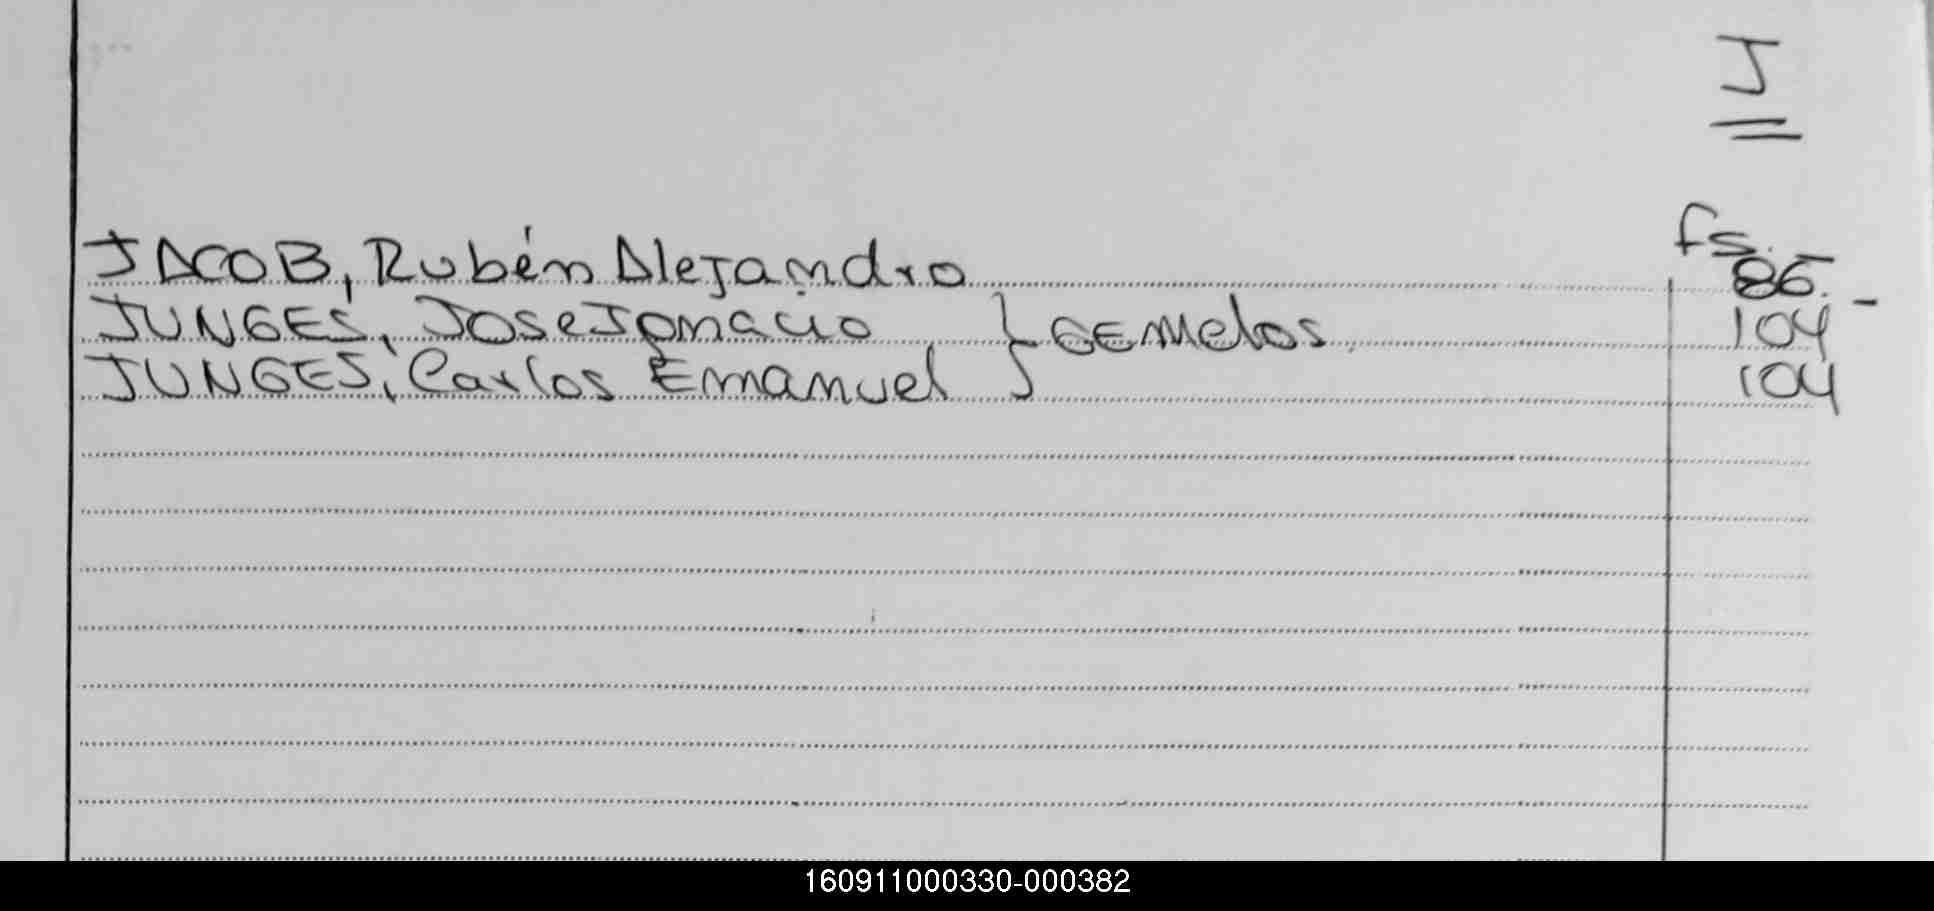 J
fs.
JACOB, Rubén Alejandro 86.-
JUNGES, Jose Ignacio } GEMelos. 104
JUNGES, Carlos Emanuel } 104
160911000330-000382